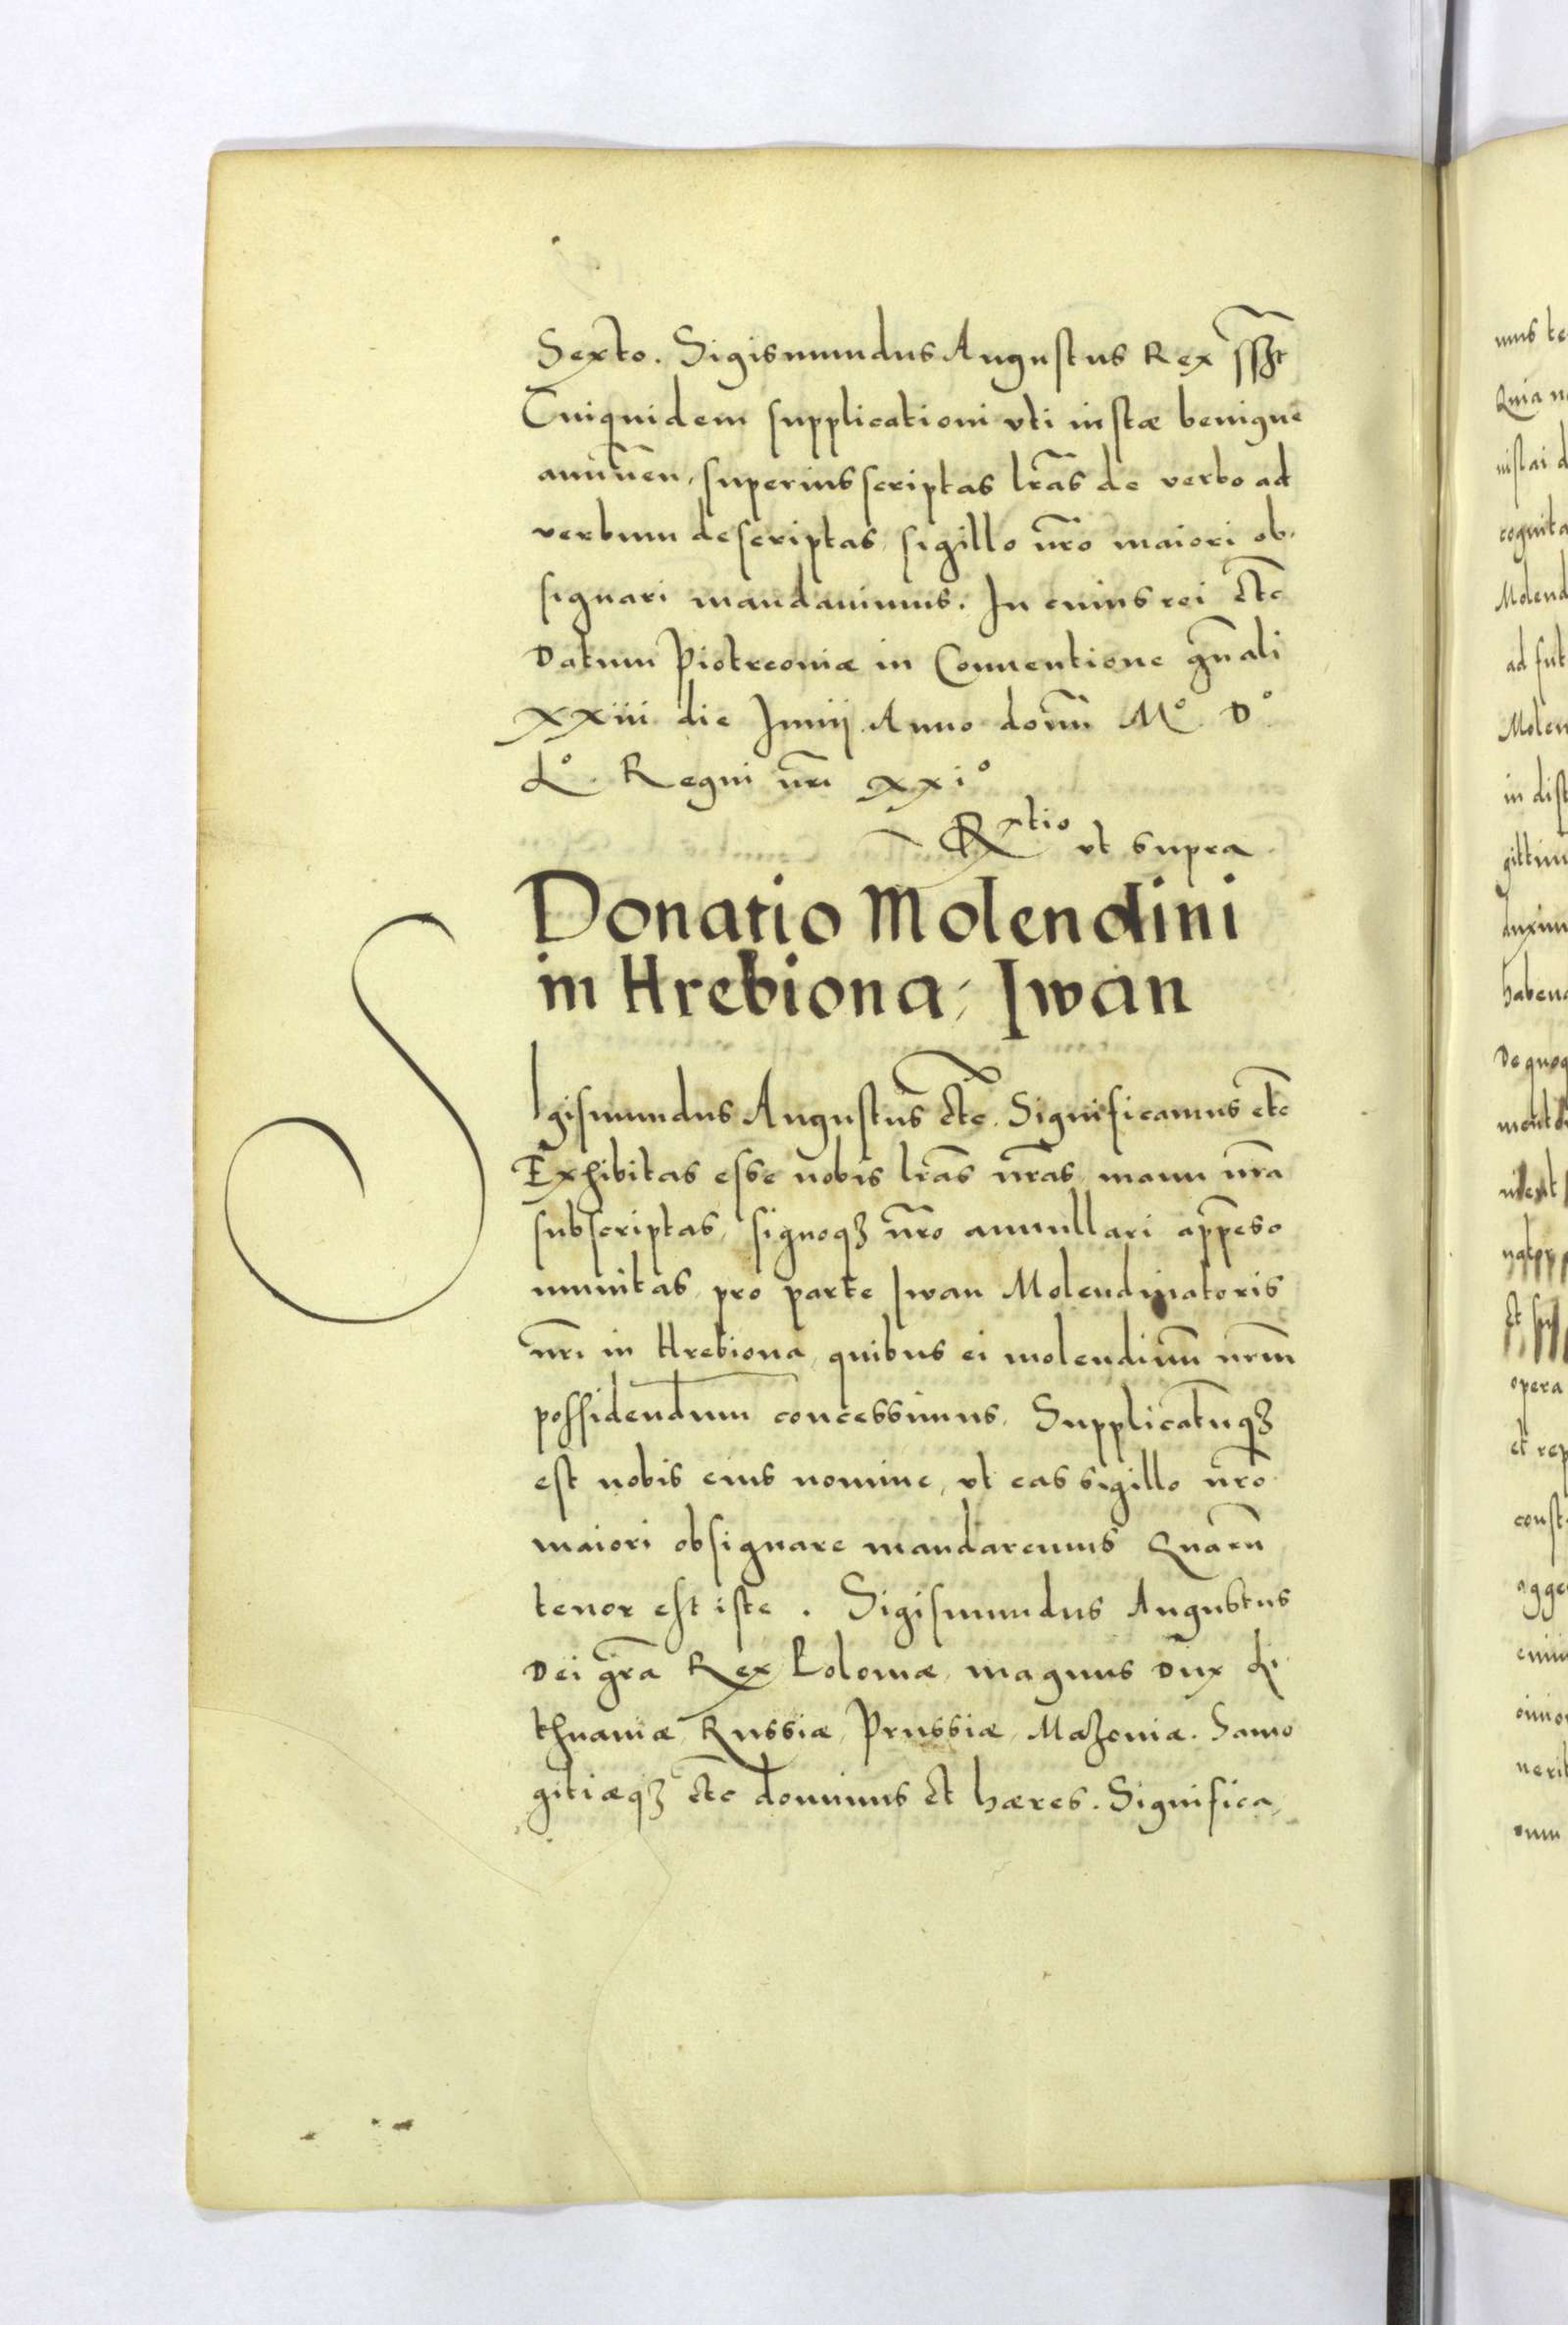 Sexto. Sigismundus Augustus Rex sszt
Cuiquidem supplicationi vti iustæ benigne
annuen̄, superius scriptas lr̄as de verbo ad
verbum descriptas, sigillo nr̄o maiori ob-
signari mandauimus. In cuius rei etc̄
Datum Piotrcouiæ in Conuentione gn̄ali
XXiii die Junij Anno domi̅ Mº Dº
Lº. Regni nr̄i xxiº
Rtio vt supra
Donatio Molendini
in Hrebiona, Iwan
SIgismundus Augustus etc̄. Significamus etc̄
Exhibitas esse nobis lr̄as nr̄as, manu nr̄a
subscriptas, signoqꝫ nr̄o annullari appenso
munitas, pro parte Iwan Molendinatoris
nr̄i in Hrebiona, quibus ei molendinū nr̄m
possidendum concessimus. Supplicatūqꝫ
est nobis eius nomine, vt eas sigillo nr̄o
maiori obsignare mandaremus Quarū
tenor est iste. Sigismundus Augustus
Dei gr̄a Rex Poloniæ, magnus Dux Li
thuaniæ, Russiæ, Prussiæ, Mazouiæ. Samo
gitiæqꝫ etc̄ dominus et hæres. Significa,